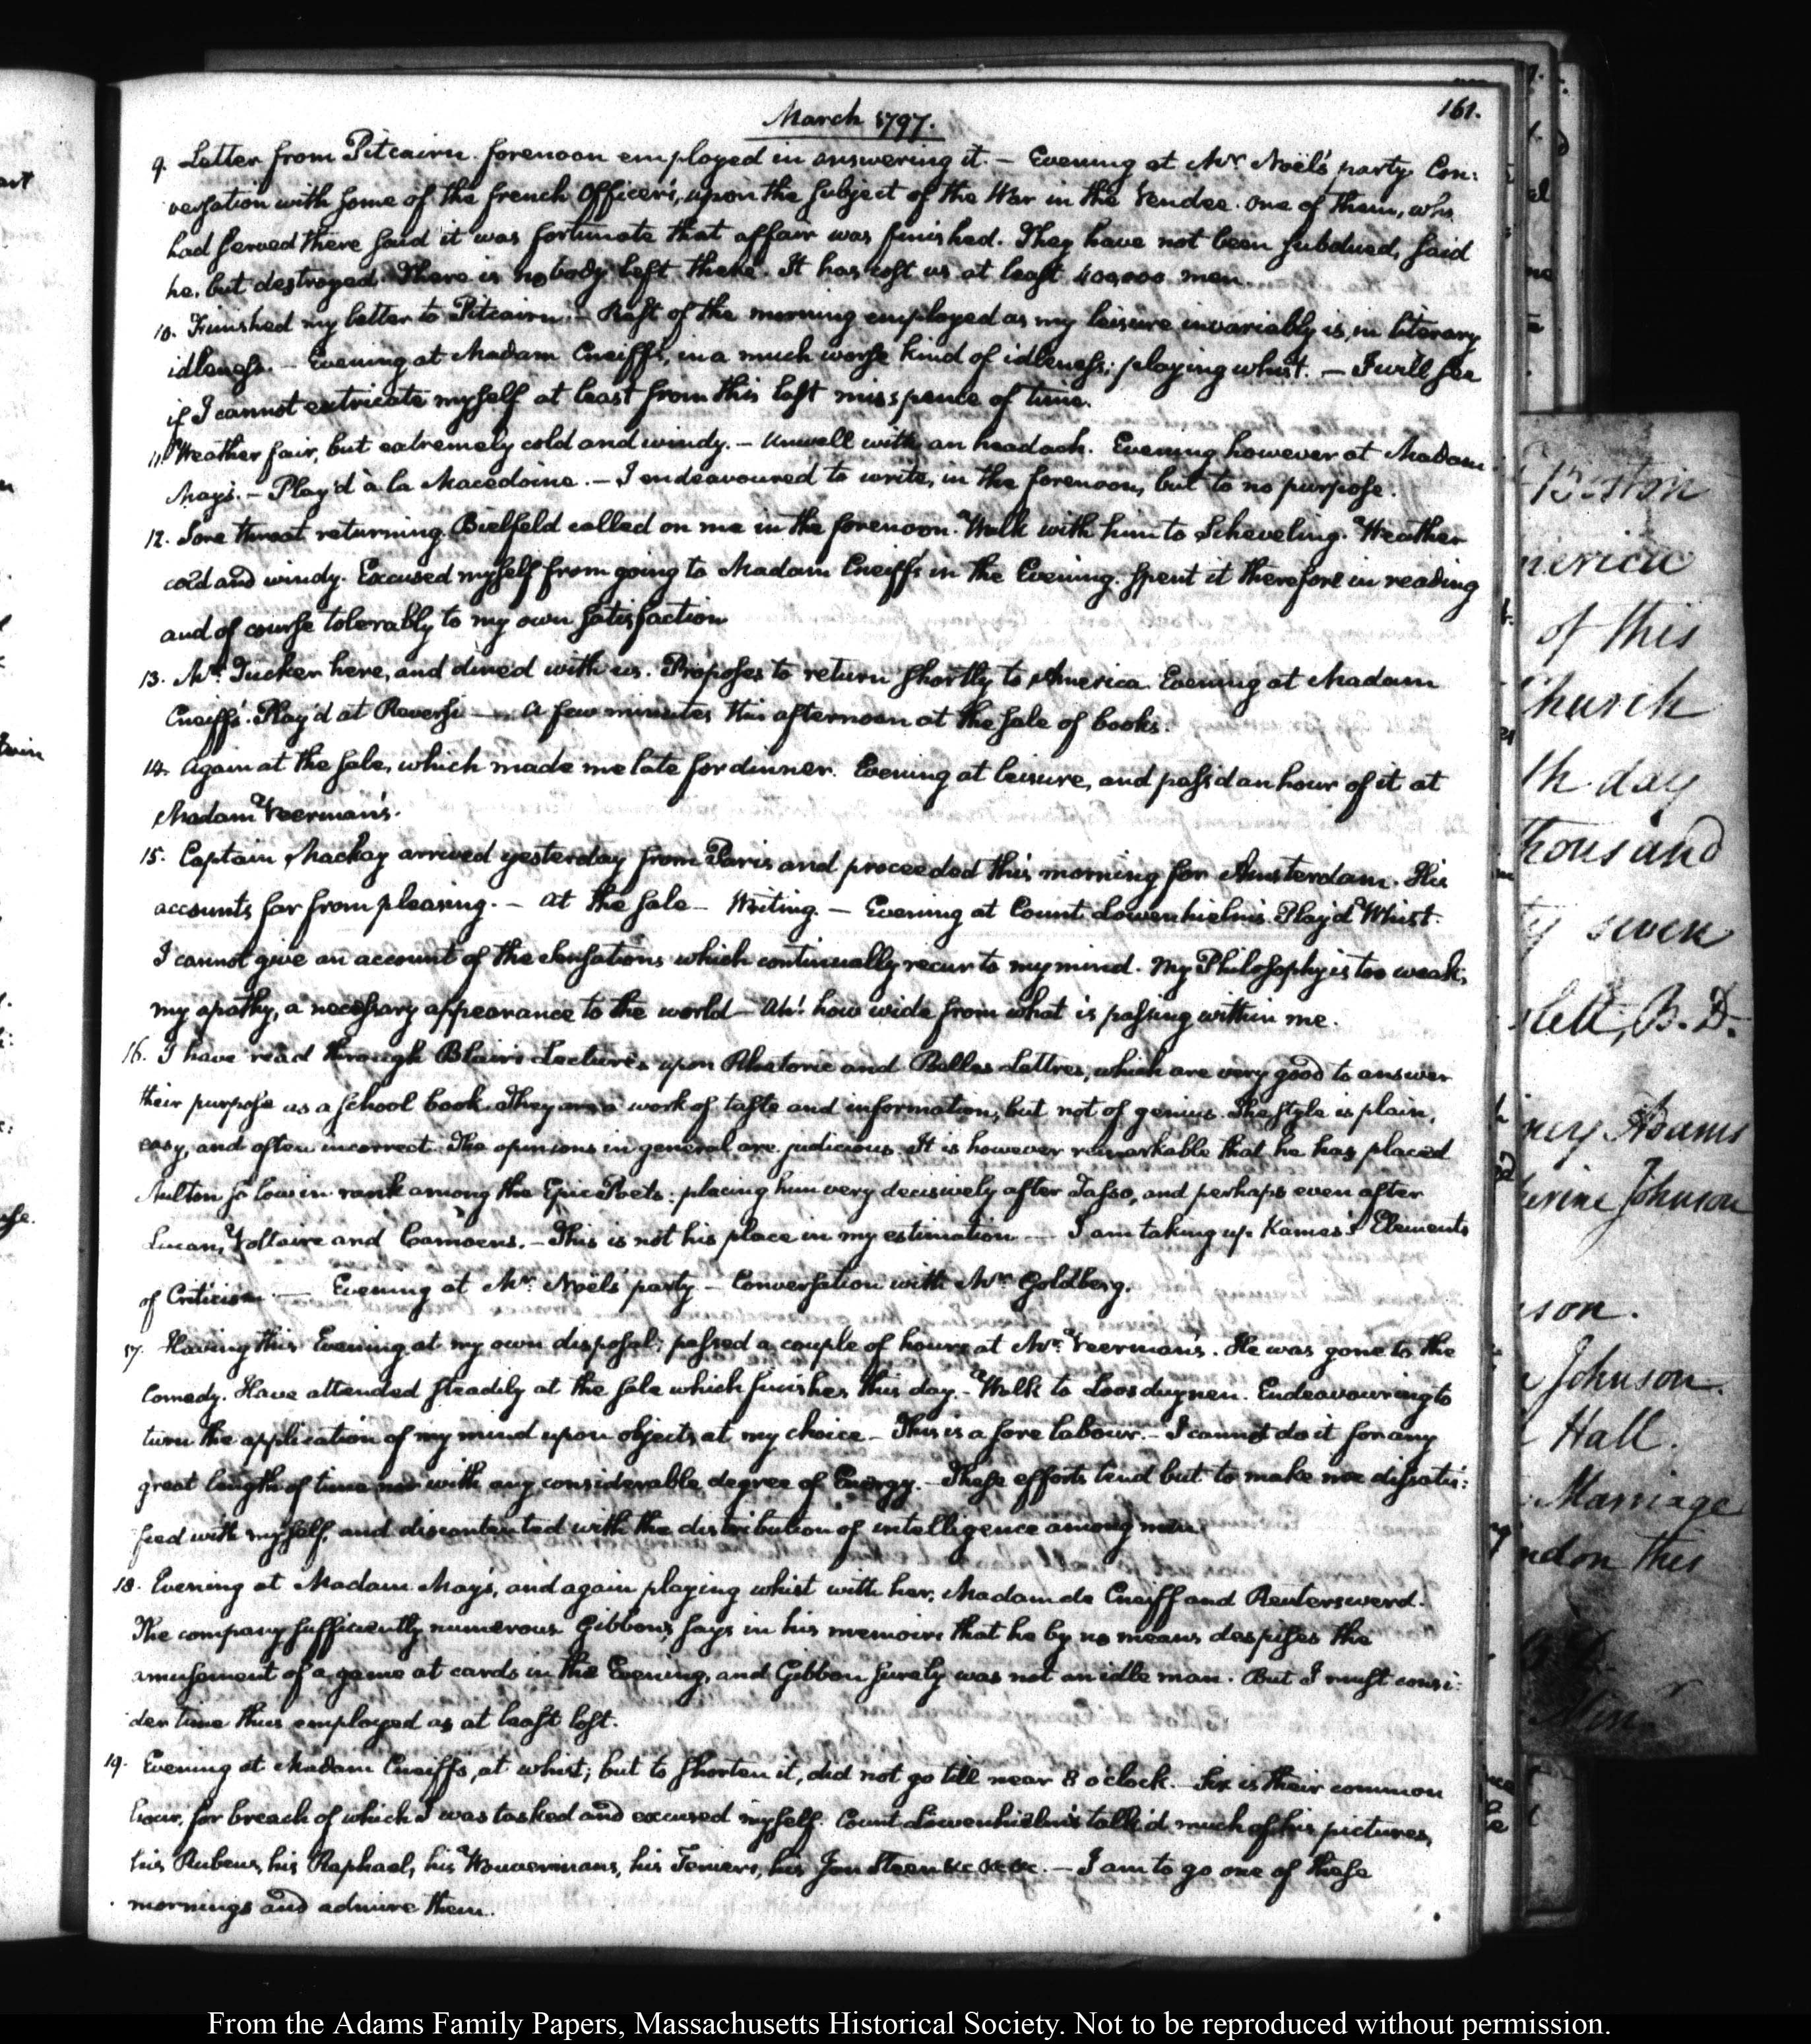 161.
March 1797.
9. Letter from Pitcairn. forenoon employed in answering it. — Evening at Mr: Noël's party. Con:
versation with some of the french Officers, upon the subject of the War in the Vendee. One of them, who
had served there said it was fortunate that affair was finished. They have not been subdued, said
he, but destroyed. There is nobody left there. It has cost us at least 400,000 men.
10. Finished my letter to Pitcairn. — Rest of the morning employed as my leisure invariably is, in literary
idleness. — Evening at Madam Cneiff's, in a much worse kind of idleness; playing whist. — I will see
if I cannot extricate myself at least from this last misspence of time.
11. Weather fair, but extremely cold and windy. — Unwell with an headach. Evening however at Madam
May's. — Play'd à la Macedoine. — I endeavoured to write, in the forenoon, but to no purpose.
12. Sore throat returning. Bielfeld called on me in the forenoon. Walk with him to Scheveling. Weather
cold and windy. Excused myself from going to Madam Cneiff's in the Evening. Spent it therefore in reading
and of course tolerably to my own satisfaction
13. Mr: Tucker here, and dined with us. Proposes to return shortly to America. Evening at Madam
Cneiff's. Play'd at Reversi — A few minutes this afternoon at the sale of books.
14. Again at the sale, which made me late for dinner. Evening at leisure, and pass'd an hour of it at
Madam Veerman's.
15. Captain Mackay arrived yesterday from Paris and proceeded this morning for Amsterdam. His
accounts far from pleasing. — At the sale — Writing. — Evening at Count Löwenhielm's. Play'd Whist.
I cannot give an account of the sensations which continually recur to my mind. My Philosophy is too weak;
my apathy, a necessary appearance to the world — Ah! how wide from what is passing within me.
16. I have read through Blair's Lectures upon Rhetoric and Belles Lettres, which are very good to answer
their purpose as a school book. They are a work of taste and information, but not of genius. The style is plain,
easy, and often incorrect. The opinions in general are judicious. It is however remarkable that he has placed
Milton so low in rank among the Epic Poets: placing him very decisively after Tasso, and perhaps even after
Lucan, Voltaire and Camoens. — This is not his place in my estimation — I am taking up Kames's Elements
of Criticism. — Evening at Mr: Noël's party — Conversation with Mr: Goldberg.
17. Having this Evening at my own disposal; passed a couple of hours at Mr: Veerman's. He was gone to the
Comedy. Have attended steadily at the sale which finishes this day. — Walk to Loosduynen. Endeavouring to
turn the application of my mind upon objects at my choice — This is a sore labour. — I cannot do it for any
great length of time nor with any considerable degree of Energy. — These efforts tend but to make me dissatis:
fied with myself, and discontented with the distribution of intelligence among men.
18. Evening at Madam May's, and again playing whist with her, Madam de Cneiff and Reuterswerd.
The company sufficiently numerous. Gibbon says in his memoirs that he by no means despises the
amusement of a game at cards in the Evening, and Gibbon surely was not an idle man. But I must consi:
der time thus employed as at least lost.
19. Evening at Madam Cneiff's, at whist; but to shorten it, did not go till near 8 o'clock. — Six is their common
hour, for breach of which I was tasked and excused myself. Count Löwenhielm's talk'd much of his pictures,
his Rubens, his Raphael, his Wouvermans, his Teniers, his Jan Steen &c &c &c. — I am to go one of these
mornings and admire them.
of this
Church
th day
seven
B. D.
Adams
Johnson
son.
Johnson.
Hall.
Marriage
this
From the Adams Family Papers, Massachusetts Historical Society. Not to be reproduced without permission.